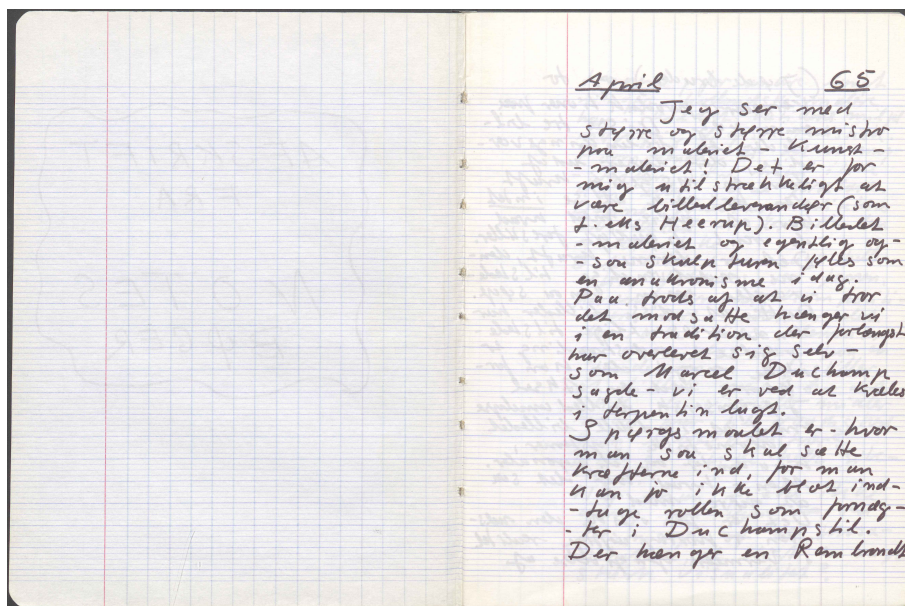 April 65
Jeg ser med
større og større mistro
paa maleriet - Kunst-
-maleriet! Det er for
mig utilstrækkeligt at
være billedleverandør (som
f.eks Heerup). Billedet
-maleriet og egentlig og-
-saa skulpturen føles som
en anakronisme idag.
Paa trods af at vi tror
det modsatte hænger vi
i en tradition der forlængst
har overlevet sig selv -
som Marcel Duchamp
sagde - vi er ved at kvæles
i terpentin lugt.
Spørgsmaalet er - hvor
man saa skal sætte
kræfterne ind, for man
kan jo ikke blot ind-
-tage rollen som fornæg-
-ter i Duchampstil.
Der hænger en Rembrandt